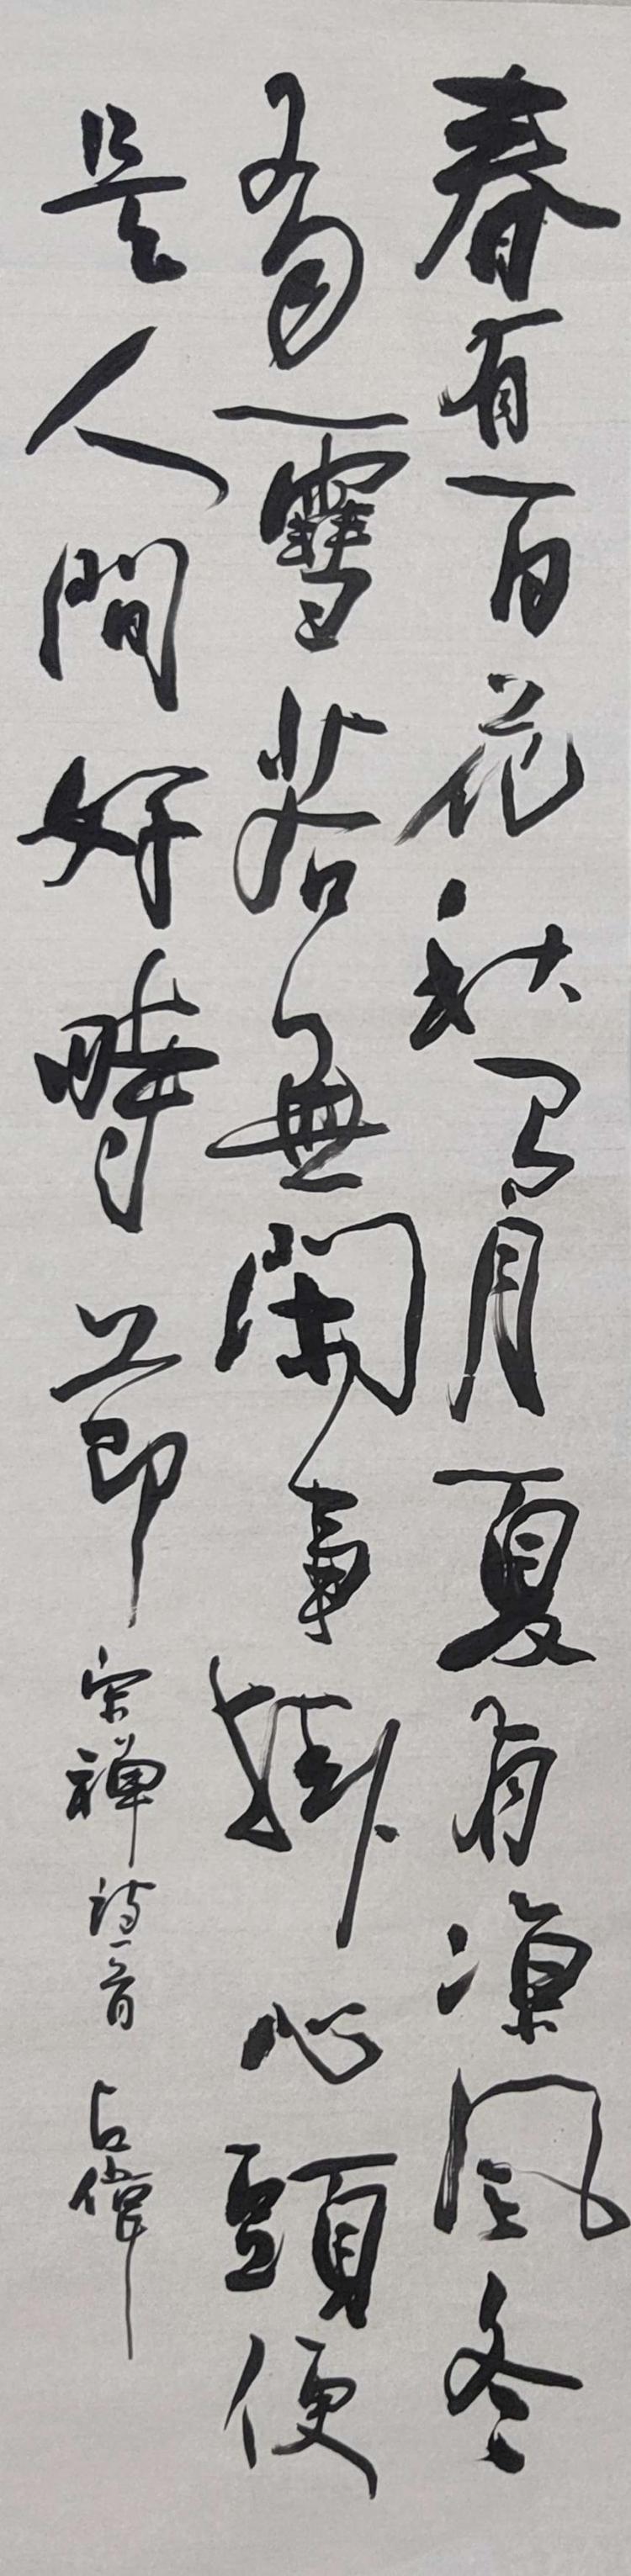 春有百花秋有月夏有凉风冬
有雪若無閑事掛心頭便
是人間好時節 宋禅詩一首 占偉